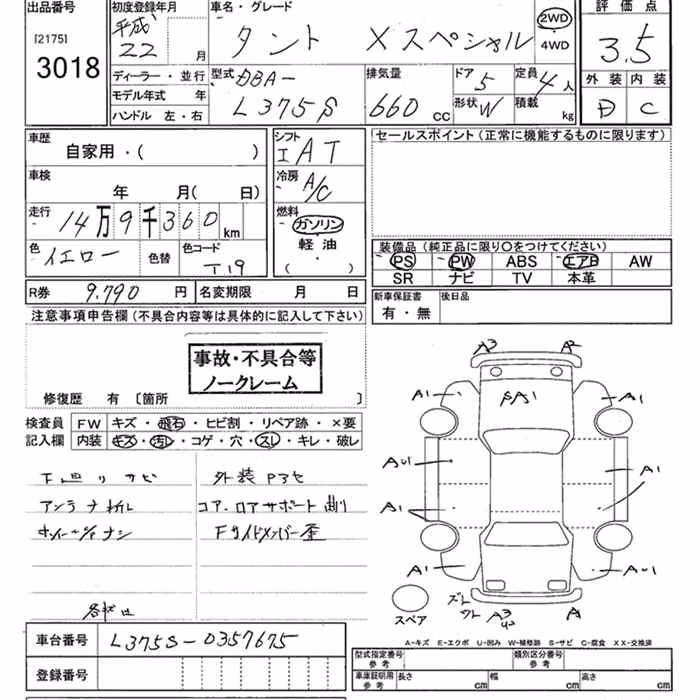 出品番号
[2175]
3018
初度登録年月
平成
22 月
ディーラー・並行
モデル年式 年
ハンドル 左・右
車名・グレード
タント Xスペシャル
2WD
・4WD
型式 DBA-
L375S
排気量
660 CC
ドア 5
定員 4人
形状 W
積載 kg
評価点
3.5
外装 内装
D C
車歴
自家用・( )
車検
年 月( 日)
走行
14万9千360km
色 イエロー 色替 色コード T19
シフト
I AT
冷房
A/C
燃料
ガソリン
軽油
( )
セールスポイント(正常に機能するものに限ります)
装備品(純正品に限り〇をつけてください)
PS PW ABS エアB AW
SR ナビ TV 本革
新車保証書 後日品
有・無
R券 9.790円 名変期限 月 日
注意事項申告欄(不具合内容等は具体的に記入して下さい)
事故・不具合等
ノークレーム
修復歴 有〔箇所 〕
検査員 FW キズ・飛石・ヒビ割・リペア跡・×要
記入欄 内装 キズ・汚レ・コゲ・穴・スレ・キレ・破レ
下回リサビ
アンテナ折レ
ホイールキャナシ
外装P3セ
コア.ロアサポート曲り
Fサイドメンバー歪
A3 A2
A1 A1
AU1 A1
A1
A1 AU1
スペア
A
A-キズ E-エクボ U-凹み W-補修跡 S-サビ C-腐食 XX-交換済
車台番号 L375S-0357675
登録番号
型式指定番号 参考
類別区分番号 参考
車庫証明用 参考 長さ cm 幅 cm 高さ cm